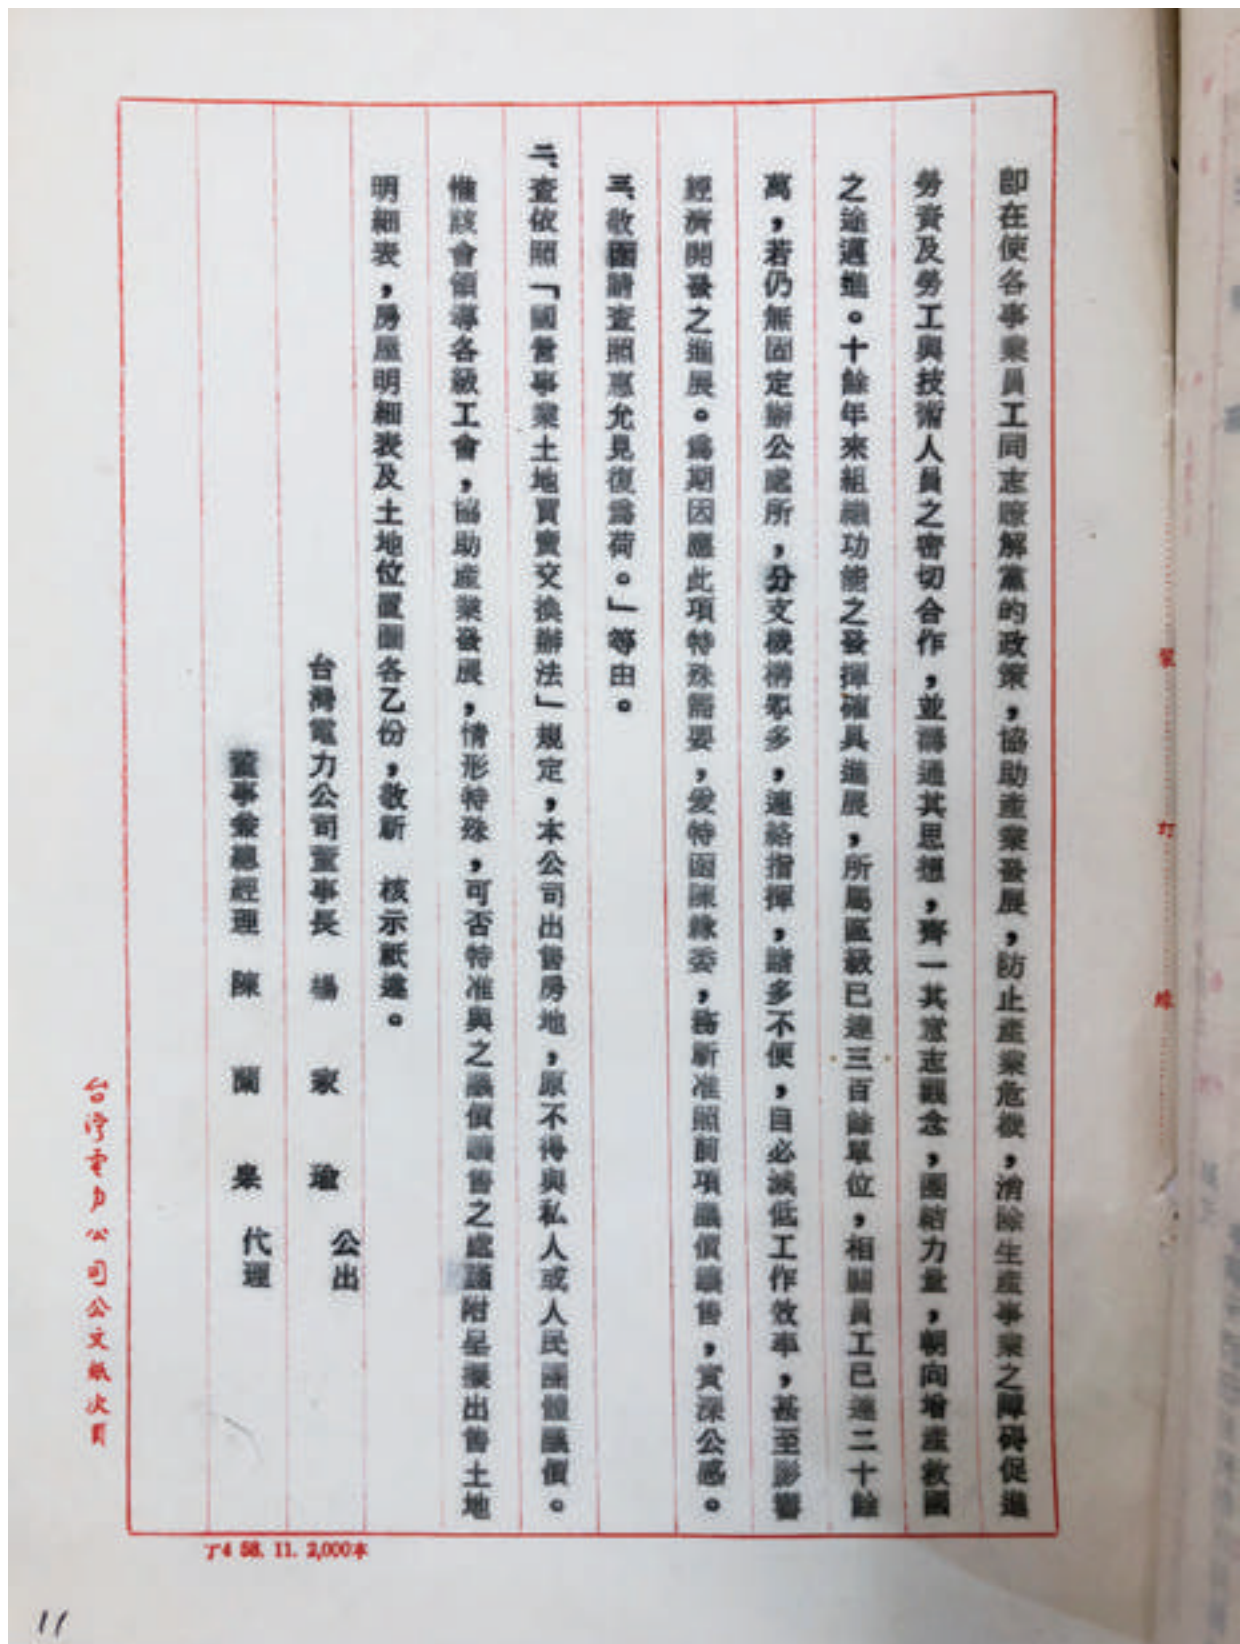 即在使各事業員工同志瞭解黨的政策，協助產業發展，防止產業危機，消除生產事業之障碍促進
勞資及勞工與技術人員之密切合作，並溝通其思想，齊一其意志觀念，團結力量，朝向增產救國
之途邁進。十餘年來組織功能之發揮確具進展，所屬區級已達三百餘單位，相關員工已達二十餘
萬，若仍無固定辦公處所，分支機構眾多，連絡指揮，諸多不便，自必減低工作效率，甚至影響
經濟開發之進展。為期因應此項特殊需要，爰特函陳緣委，務祈准照前項議價讓售，實深公感。
三、敬函請查照惠允見復為荷。」等由。
二、查依照「國營事業土地買賣交換辦法」規定，本公司出售房地，原不得與私人或人民團體議價。
惟該會領導各級工會，協助產業發展，情形特殊，可否特准與之議價讓售之處謹附呈擬出售土地
明細表，房屋明細表及土地位置圖各乙份，敬祈 核示祇遵。
台灣電力公司董事長 楊家瑜 公出
董事兼總經理 陳蘭皋 代理
台灣電力公司公文紙次頁
丁4 58. 11. 2,000本
裝 訂 線
11